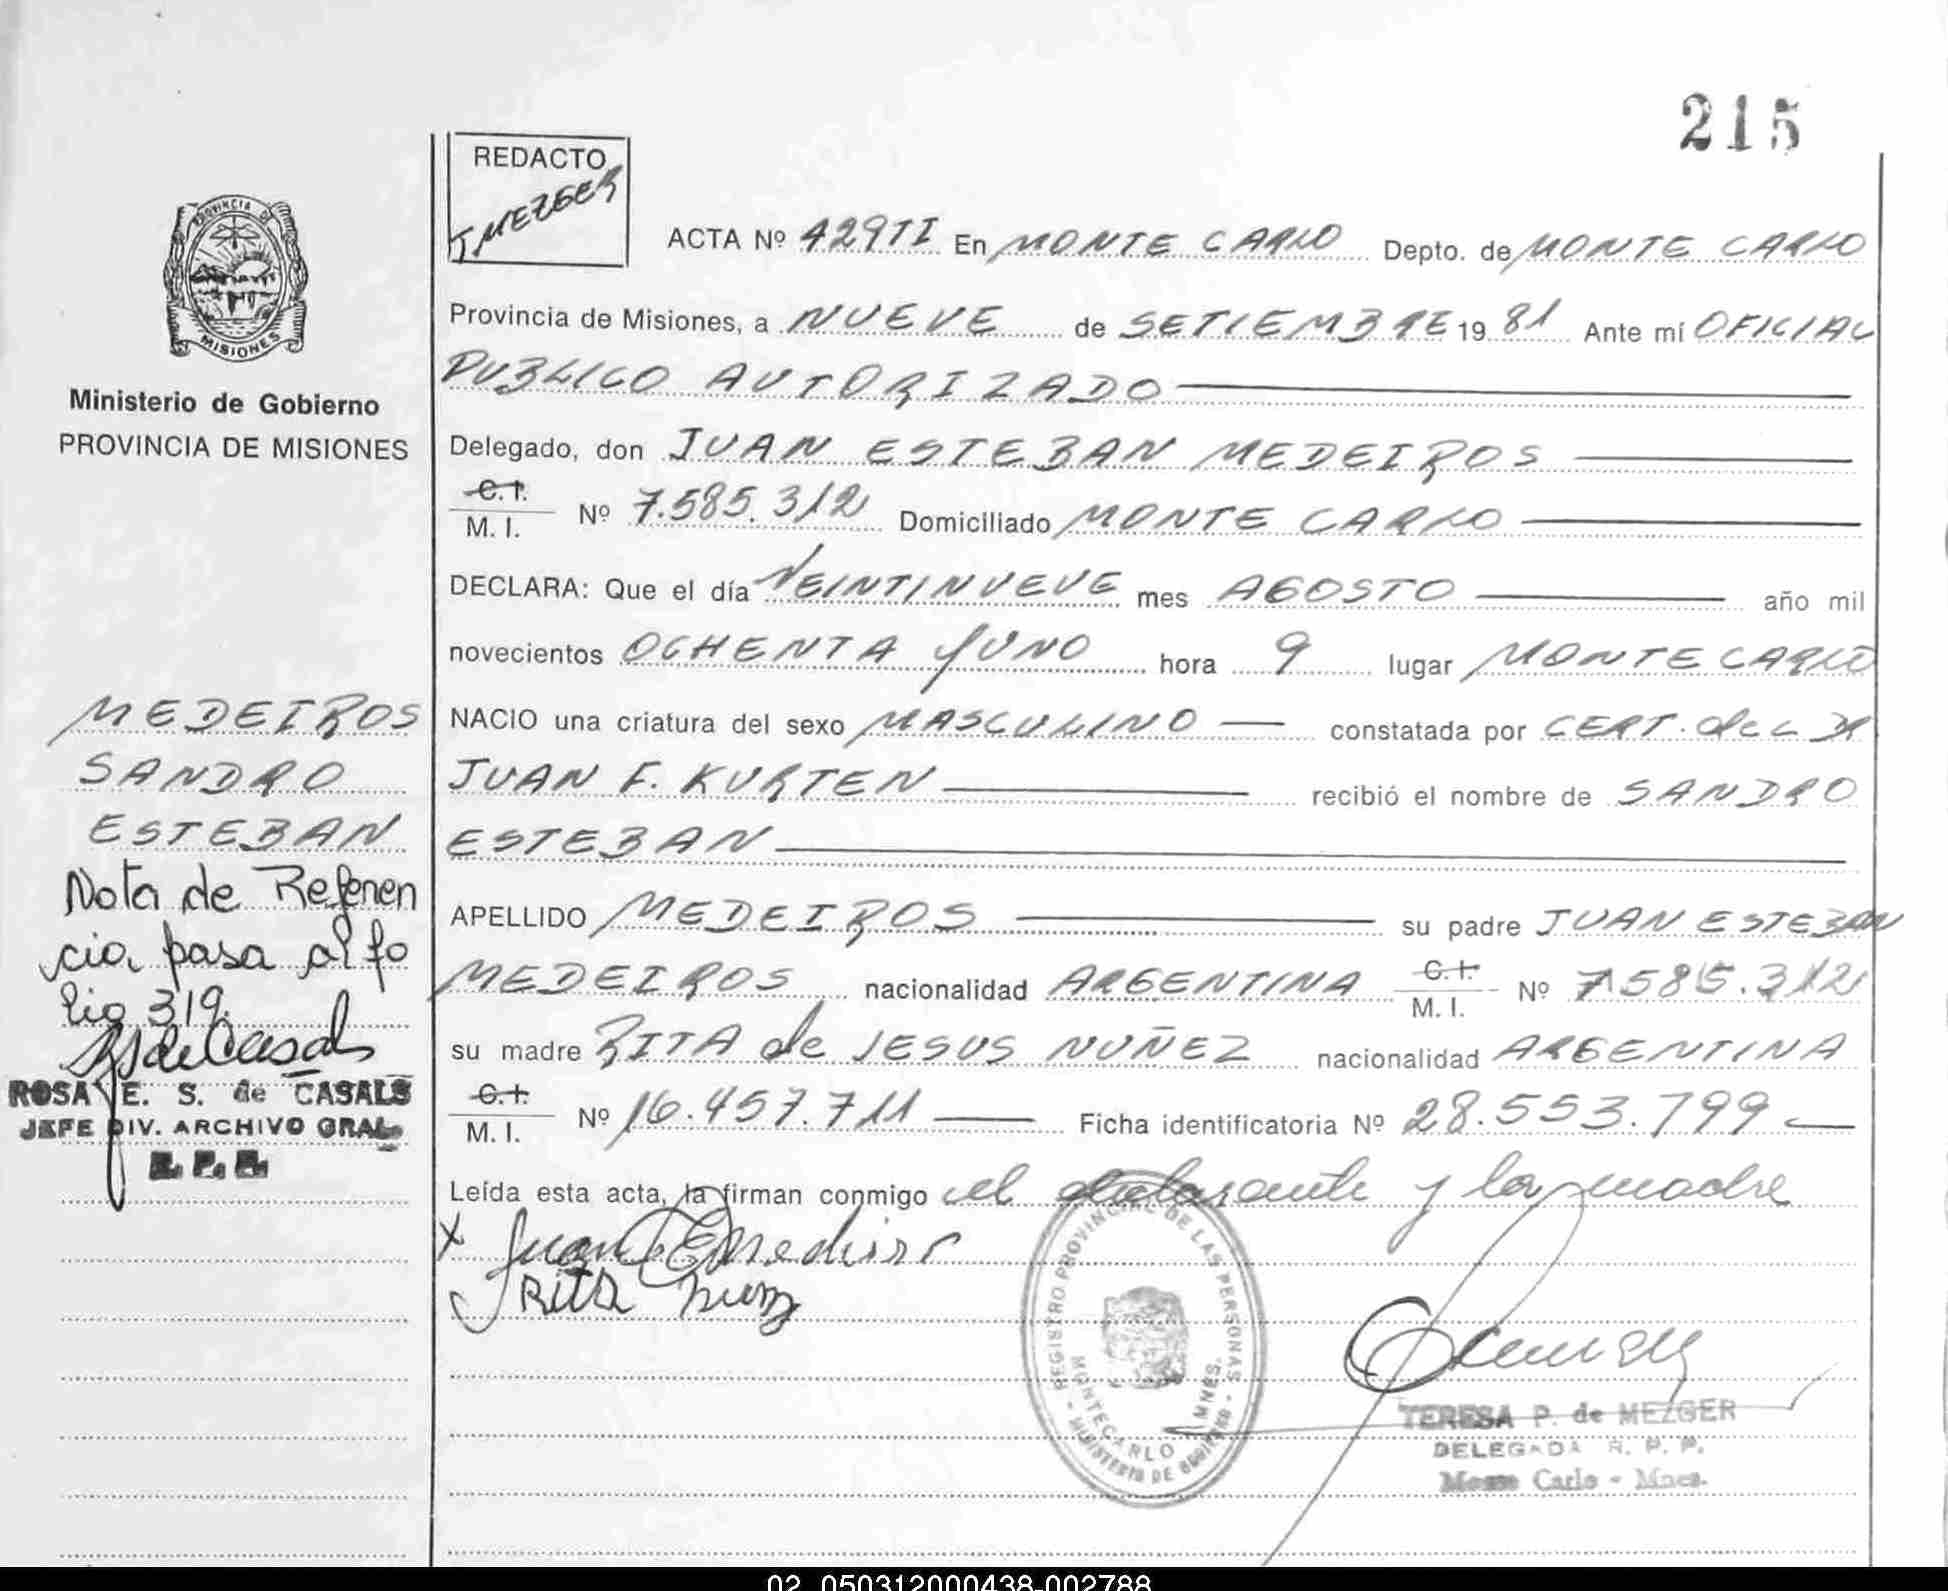 215
REDACTO
T MEZGER
ACTA Nº 429TI En MONTE CARLO Depto. de MONTE CARLO
Provincia de Misiones, a NUEVE de SETIEMBRE 1981 Ante mí OFICIAL
PUBLICO AUTORIZADO
Delegado, don JUAN ESTEBAN MEDEIROS
C.I.
M. I. Nº 7.585.312 Domiciliado MONTE CARLO
DECLARA: Que el día VEINTINUEVE mes AGOSTO año mil
novecientos OCHENTA y UNO hora 9 lugar MONTE CARLO
NACIO una criatura del sexo MASCULINO constatada por CERT. del DR
JUAN F. KURTEN recibió el nombre de SANDRO
ESTEBAN
APELLIDO MEDEIROS su padre JUAN ESTEBAN
MEDEIROS nacionalidad ARGENTINA C.I. M. I. Nº 7.585.312
su madre RITA de JESUS NUÑEZ nacionalidad ARGENTINA
C.I.
M. I. Nº 16.457.711 Ficha identificatoria Nº 28.553.799
Leída esta acta, la firman conmigo el declarante y la madre
X Juan E Medeiros
RITA Nuñez
PROVINCIA DE
MISIONES
Ministerio de Gobierno
PROVINCIA DE MISIONES
MEDEIROS
SANDRO
ESTEBAN
Nota de Referen
cia pasa al fo
lio 319.
RSdeCasals
ROSA E. S. de CASALS
JEFE DIV. ARCHIVO GRAL.
REGISTRO PROVINCIAL DE LAS PERSONAS - MINISTERIO DE GOBIERNO -
MONTECARLO MNES.
TERESA P. de MEZGER
DELEGADA R. P. P.
Monte Carlo - Mnes.
02 050312000438-002788